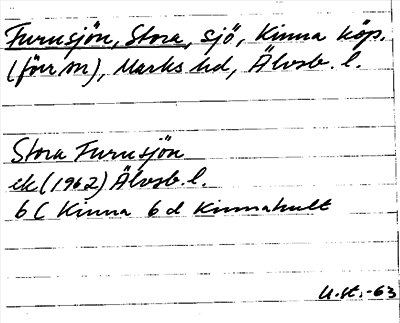 Furusjön, Stora, sjö, Kinna köp.
(förr sn), Marks hd, Älvsb. l.
Stora Furusjön
ek (1962) Älvsb. l.
6 C Kinna 6 d Kinnahult
-63